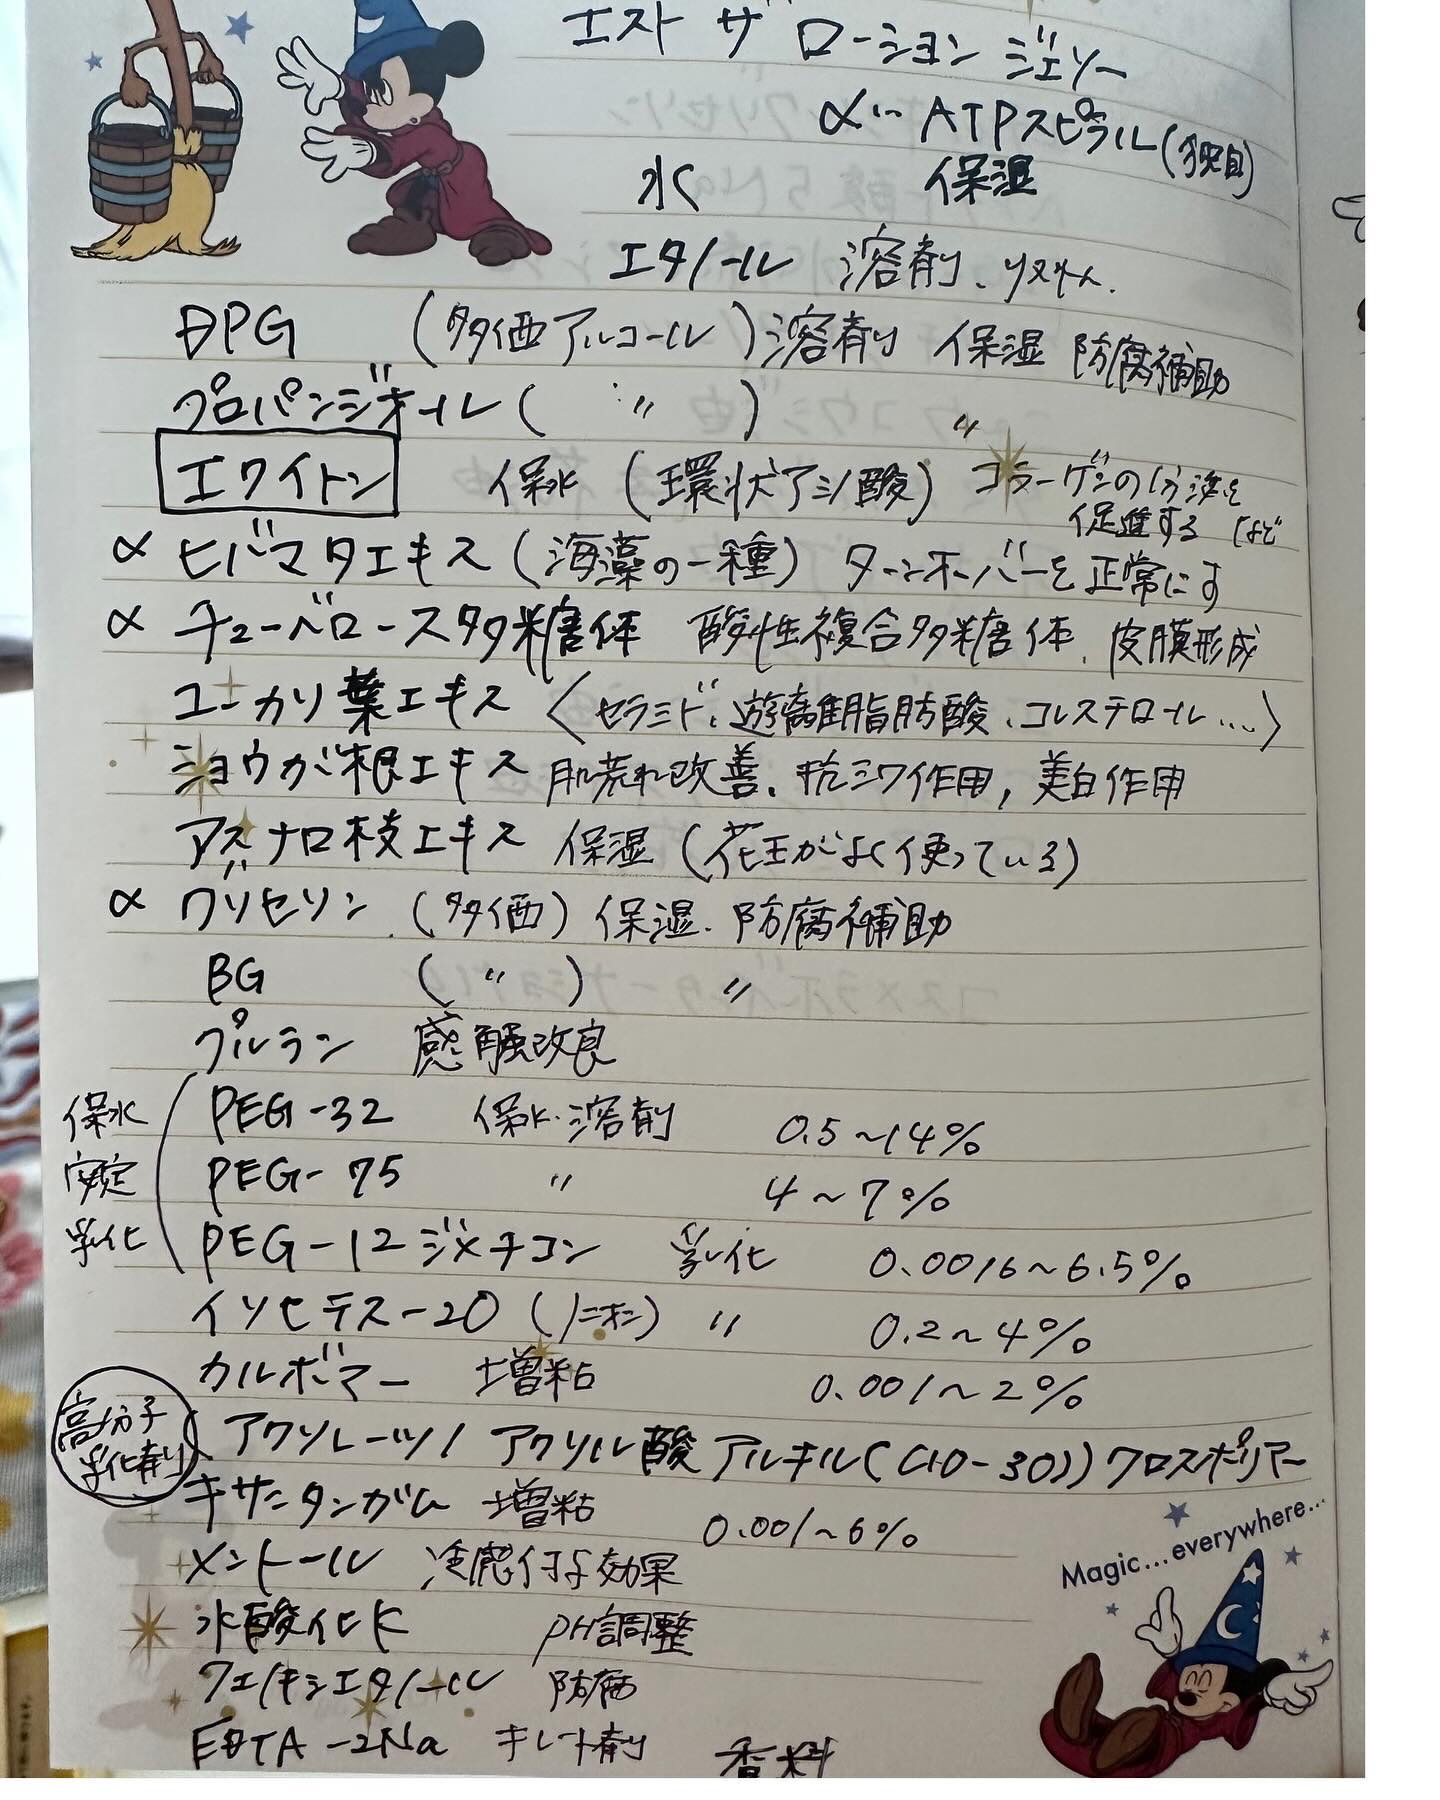 エスト ザ ローション ジェリー
α… ATPスピラル(独自)
水 保湿
エタノール 溶剤、
DPG (多価アルコール) 溶剤 保湿 防腐補助
プロパンジオール ( 〃 ) 〃
エクイトン 保水 (環状アミノ酸) コラーゲンの分泌を
促進する など
α ヒバマタエキス (海藻の一種) ターンオーバーを正常にす
α チューベロース多糖体 酸性複合多糖体、皮膜形成
ユーカリ葉エキス 〈セラミド、遊離脂肪酸、コレステロール…〉
ジョウガ根エキス 肌荒れ改善、抗シワ作用, 美白作用
アスナロ枝エキス 保湿 (花王がよく使っている)
α グリセリン (多価) 保湿、防腐補助
BG ( 〃 ) 〃
プルラン 感触改良
保水 PEG-32 保水・溶剤 0.5〜14%
安定 PEG-75 〃 4〜7%
乳化 PEG-12ジメチコン 乳化 0.0016〜6.5%
イソセテス-20 (ノニオン) 〃 0.2〜4%
カルボマー 増粘 0.001〜2%
高分子
乳化剤 アクリレーツ/アクリル酸アルキル(C10-30))クロスポリマー
キサンタンガム 増粘 0.001〜6%
メントール 冷感付与効果
水酸化K pH調整
フェノキシエタノール 防腐
EDTA-2Na キレート剤 香料
Magic...everywhere...